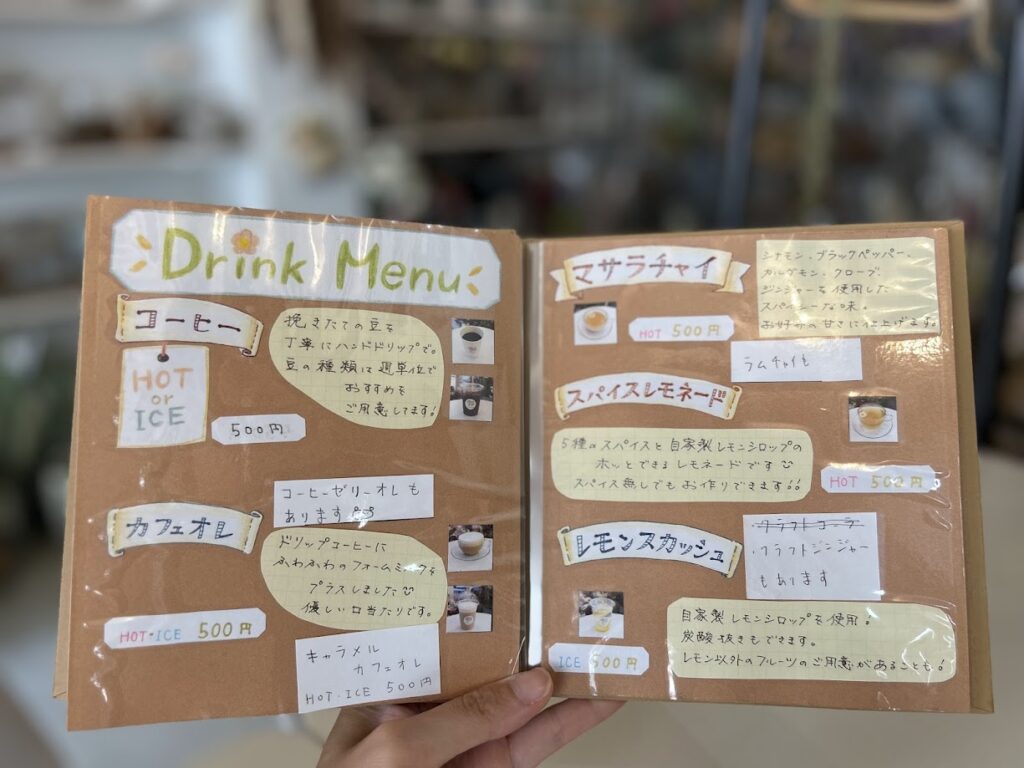 Drink Menu
コーヒー
HOT
or
ICE
500円
挽きたての豆を
丁寧にハンドドリップで。
豆の種類は週単位で
おすすめを
ご用意してます!
コーヒーゼリーオレも
あります
カフェオレ
HOT・ICE 500円
ドリップコーヒーに
ふわふわのフォームミルクを
プラスしました
優しい口当たりです。
キャラメル
カフェオレ
HOT・ICE 500円
マサラチャイ
HOT 500円
シナモン、ブラックペッパー、
カルダモン、クローブ、
ジンジャーを使用した
スパイシーな味。
お好みの甘さに仕上げます。
ラムチャイも
スパイスレモネード
5種のスパイスと自家製レモンシロップの
ホッとできるレモネードです
スパイス無しでもお作りできます!!
HOT 500円
レモンスカッシュ
・クラフトコーラ
・クラフトジンジャー
もあります
ICE 500円
自家製レモンシロップを使用!
炭酸抜きもできます。
レモン以外のフルーツのご用意があることも!